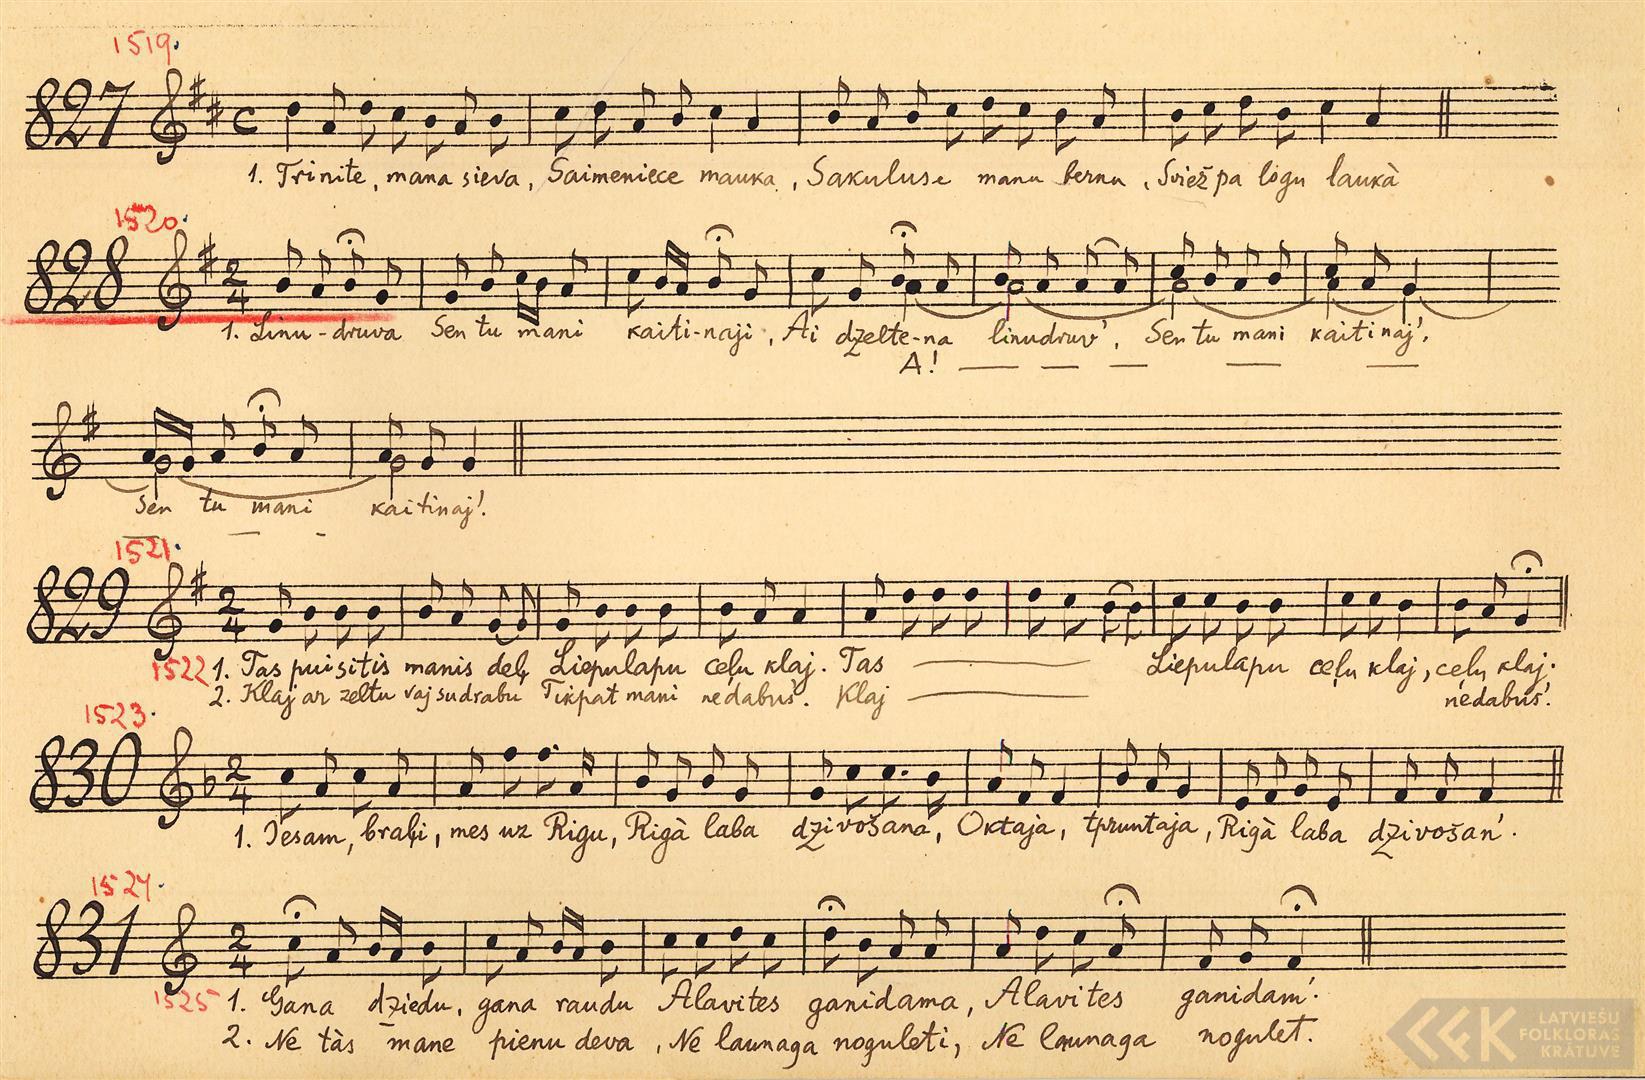 1519.
827
1. Trinite, mana sieva, Saimeniece mauka, Sakuluse manu bernu, Sviež pa logu laukà
1520.
828
1. Linu-druva Sen tu mani kaiti-naji, Ai dzelte-na linudruv', Sen tu mani kaitinaj',
A!
Sen tu mani kaitinaj'.
1521.
829
1. Tas puisitis manis deļ Liepulapu ceļu klaj. Tas Liepulapu ceļu klaj, ceļu klaj.
1522
2. Klaj ar zeltu vaj sudrabu Tikpat mani nedabus'. Klaj nedabus'.
1523.
830
1. Iesam, braļi, mes uz Rigu, Rigà laba dzivošana, Oktaja, tpruntaja, Rigà laba dzivošan'.
1524.
831
1. Gana dziedu, gana raudu Alavites ganidama, Alavites ganidam'.
1525
2. Ne tàs mane pienu deva, Ne launaga noguleti, Ne launaga nogulet.
LATVIEŠU
FOLKLORAS
KRĀTUVE